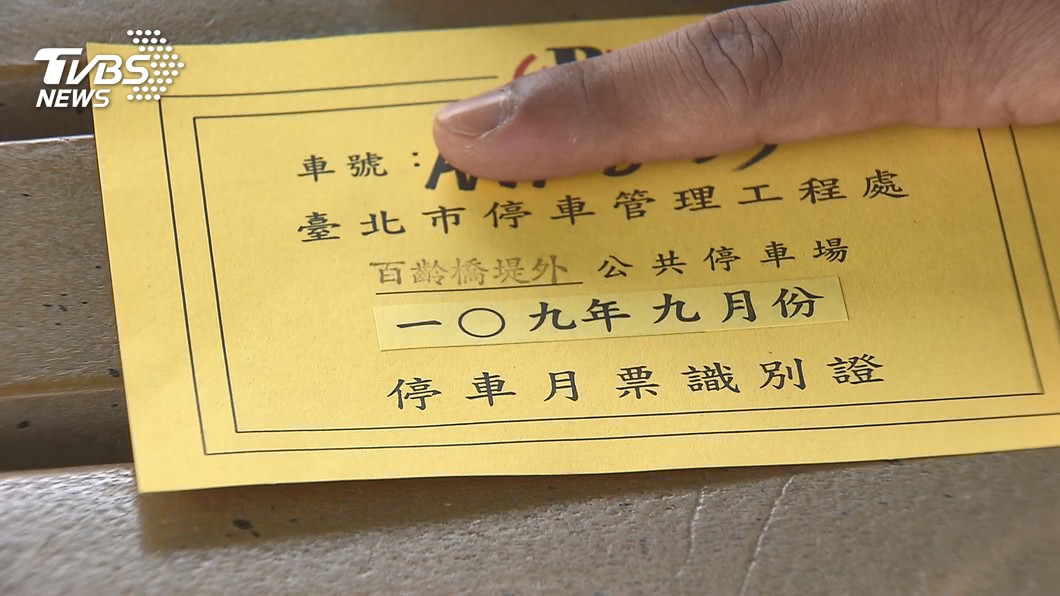 TVBS
NEWS
車號：
臺北市停車管理工程處
百齡橋堤外 公共停車場
一〇九年九月份
停車月票識別證